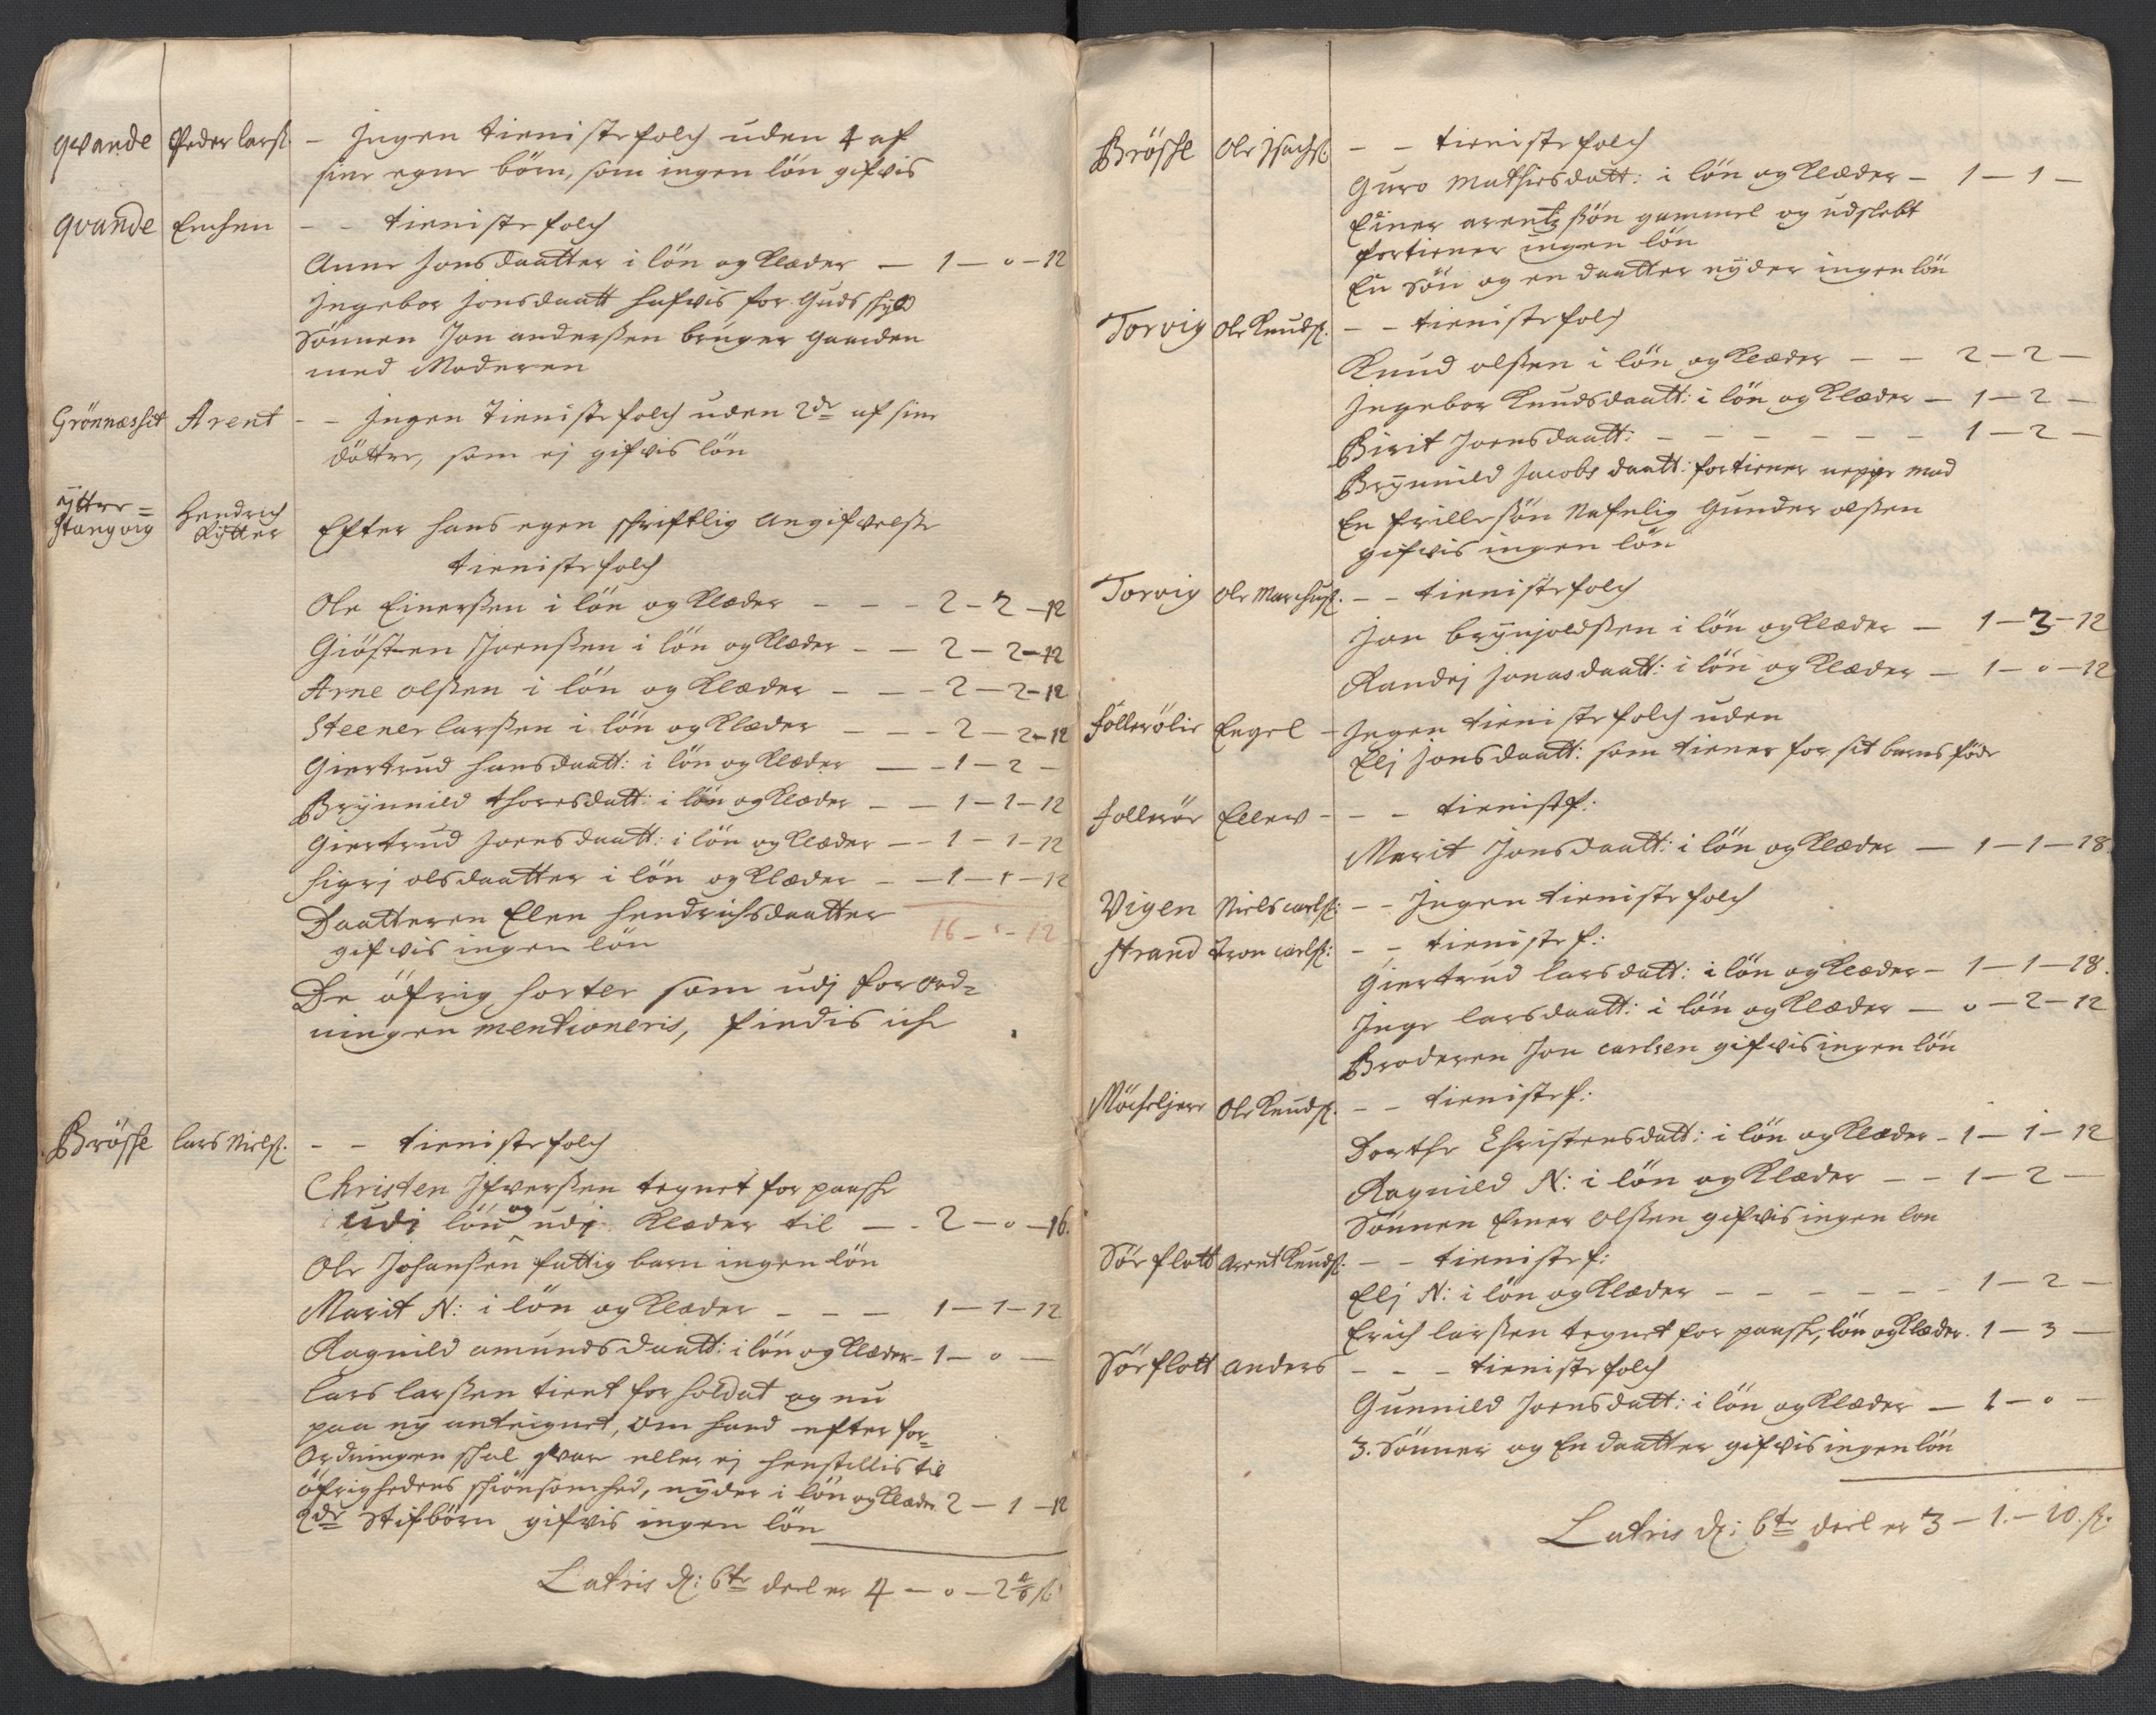 qvande Peder larsß: - Ingen tieniste folch uden 4 af
sine egne börn, som ingen lön gifvis
qvande Enchen - - tieniste folch
Anne Jonsdaatter i lön og Klæder — 1 — 0 — 12
Ingebor Jonsdaatt hafvis for Guds skyld
Sönnen Jon anderßen bruger gaarden
med Moderen
Grönnæsset Arent - - Ingen tieniste folch uden 2de af sine
döttre, som ej gifvis lön
ÿttre= Hendrich
Stangvig Rÿtter Efter hans egen skriftlig Angifvelse
tieniste folch
Ole Einerßen i lön og Klæder - - - 2 - 2 - 12
Giösten Joenßen i lön og Klæder - - 2 - 2 - 12
Arne olßen i lön og Klæder - - - 2 - 2 - 12
Steener larßen i lön og Klæder - - - 2 - 2 - 12
Giertrud hansdaatt: i lön og Klæder — - 1 - 2 -
Brÿnnild thoresdatt: i lön og Klæder - - 1 - 1 - 12
Giertrud Joensdaatt: i lön og Klæder - - 1 - 1 - 12
Sigrj olsdaatter i lön og Klæder - - 1 - 1 - 12
Daatteren Elen Hendrichsdaatter
gifvis ingen lön 16 - 1 - 12
De öfrig sorter som udj forord=
ningen mentioneris, findis iche
Brösche lars Nielß: - - tieniste folch
Christen Ifverßen tegnet for paaske
udi lön og udj Klæder til - - 2 - 0 - 16.
Ole Johanßen fattig barn ingen lön
Marit N: i lön og Klæder - - - 1 - 1 - 12
Ragnild amundsdaatt: i lön og Klæder - 1 - 0 -
Lars larßen tient for soldat og nu
paa nÿ anteignet, om hand efter for=
Ordningen skal svare eller ej henstillis til
öfrighedens skiönsomhed, nÿder i lön og Klæder 2 - 1 - 12
2de Stifbörn gifvis ingen lön
Lateris d: 6te deel er 4 - 0 - 2 4/6 ß:
Brösche Ole Isachß: - - tieniste folch
Guro Mathiesdatt: i lön og Klæder - 1 - 1 -
Einer arentzsön gammel og udslebt
fortiener ingen lön
En Sön og en daatter nÿder ingen lön
Torvig Ole Knudß: - - tieniste folch
Knud olßen i lön og Klæder - - 2 - 2 -
Ingebor Knudsdaatt: i lön og Klæder - 1 - 2 -
Birit Joensdaatt: - - - - - - 1 - 2 -
Brÿnnild Jacobs daatt: fortiener neppe mad
En frille sön Nafnlig Gunder olßen
gifvis ingen lön
Torvig Ole Marchuß: - - tieniste folch
Jon brÿnjoldßen i lön og Klæder - 1 - 3 - 12
Randej Jonasdaatt: i lön og Klæder - 1 - 0 - 12
follerölie Engel - Ingen tieniste folch uden
Elj Jonsdaatt: som tiener for sit barns föde
follerör Ellev - - - tienistef:
Marit Jonsdaatt: i lön og Klæder — 1 - 1 - 18
Vigen Niels carlß: - - Ingen tieniste folch
Strand Tron carlß: - - tienistef:
Giertrud larsdatt: i lön og Klæder - 1 - 1 - 18.
Inge larsdaatt: i lön og Klæder — 0 - 2 - 12
Broderen Jon carlsen gifvis ingen lön
Möcheljere Ole Knudß: - - tienistef:
Dorthe Christensdatt: i lön og Klæder - 1 - 1 - 12
Ragnild N: i lön og Klæder - - 1 - 2 -
Sönnen Einer Olßen gifvis ingen lön
Sörflott Arent Knudß: - - tienistef:
Elj N: i lön og Klæder - - - - - - 1 - 2 -
Erich larßen tegnet for paaske, lön og Klæder. 1 - 3 -
Sörflott anders - - - tieniste folch
Gunnild Joensdatt: i lön og Klæder — 1 - 0 -
3. Sönner og En daatter gifvis ingen lön
Lateris d: 6te deel er 3 - 1. - 10. ß: